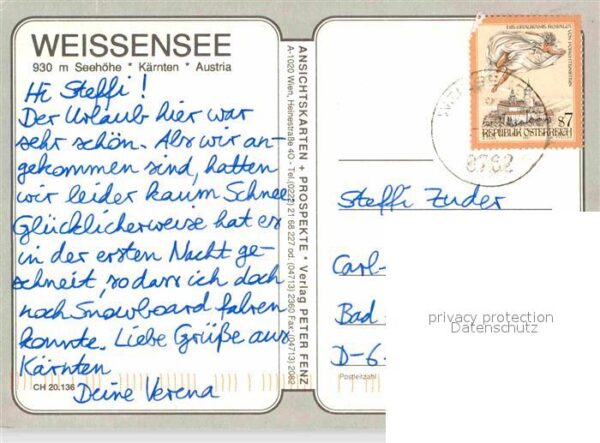 WEISSENSEE
930 m Seehöhe * Kärnten * Austria
Hi Steffi!
Der Urlaub hier war
sehr schön. Als wir an-
gekommen sind, hatten
wir leider kaum Schnee.
Glücklicherweise hat es
in der ersten Nacht ge-
schneit, so dass ich doch
noch Snowboard fahren
konnte. Liebe Grüße aus
Kärnten
Deine Verena
CH 20.136
ANSICHTSKARTEN + PROSPEKTE * Verlag PETER FENZ
A-1020 Wien, Heinestraße 40 - Tel. (0222) 21 68 227 od. (04713) 2360 Fax-(04713) 2082
S7
REPUBLIK ÖSTERREICH
Steffi Zuder
Carl-
Bad
D-6
Postleitzahl
privacy protection
Datenschutz